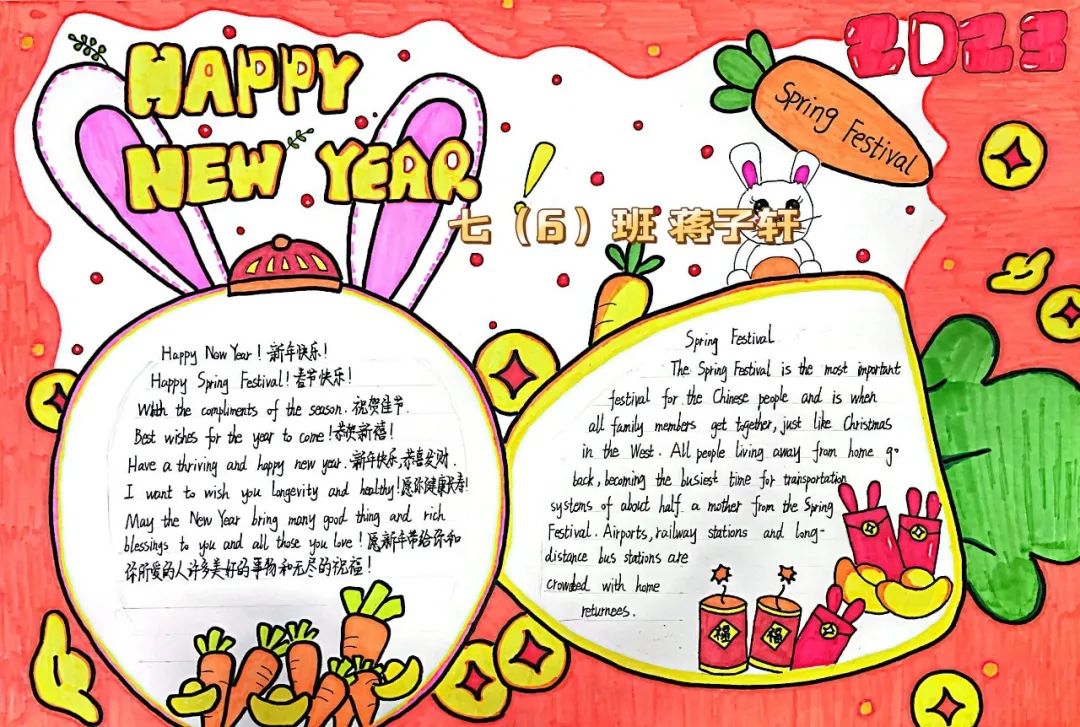 HAPPY
NEW YEAR!
2023
Spring Festival
七（6）班 蒋子轩
Happy New Year! 新年快乐!
Happy Spring Festival! 春节快乐!
With the compliments of the season. 祝贺佳节.
Best wishes for the year to come! 恭贺新禧!
Have a thriving and happy new year. 新年快乐,恭喜发财.
I want to wish you longevity and healthy! 愿你健康长寿!
May the New Year bring many good thing and rich
blessings to you and all those you love! 愿新年带给你和
你所爱的人许多美好的事物和无尽的祝福!
Spring Festival
The Spring Festival is the most important
festival for the Chinese people and is when
all family members get together, just like Christmas
in the West. All people living away from home go
back, becoming the busiest time for transportation
systems of about half a mother from the Spring
Festival. Airports, railway stations and long-
distance bus stations are
crowded with home
returnees.
福
福